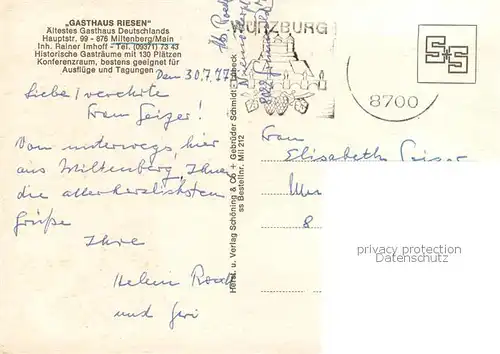 „GASTHAUS RIESEN"
Ältestes Gasthaus Deutschlands
Hauptstr. 99 - 876 Miltenberg/Main
Inh. Rainer Imhoff - Tel. (09371) 73 43
Historische Gasträume mit 130 Plätzen
Konferenzraum, bestens geeignet für
Ausflüge und Tagungen
Den 30.7.77
Liebe, verehrte
Frau Geiger!
Von unterwegs, hier
aus Miltenberg, Ihnen
die allerherzlichsten
Grüße
Ihre
und
Herst. u. Verlag Schöning & Co + Gebrüder Schmidt, Lübeck
ss Bestellnr. Mil 212
WÜRZBURG
8700
S+S
Frau
Elisabeth Geiger
8
privacy protection
Datenschutz